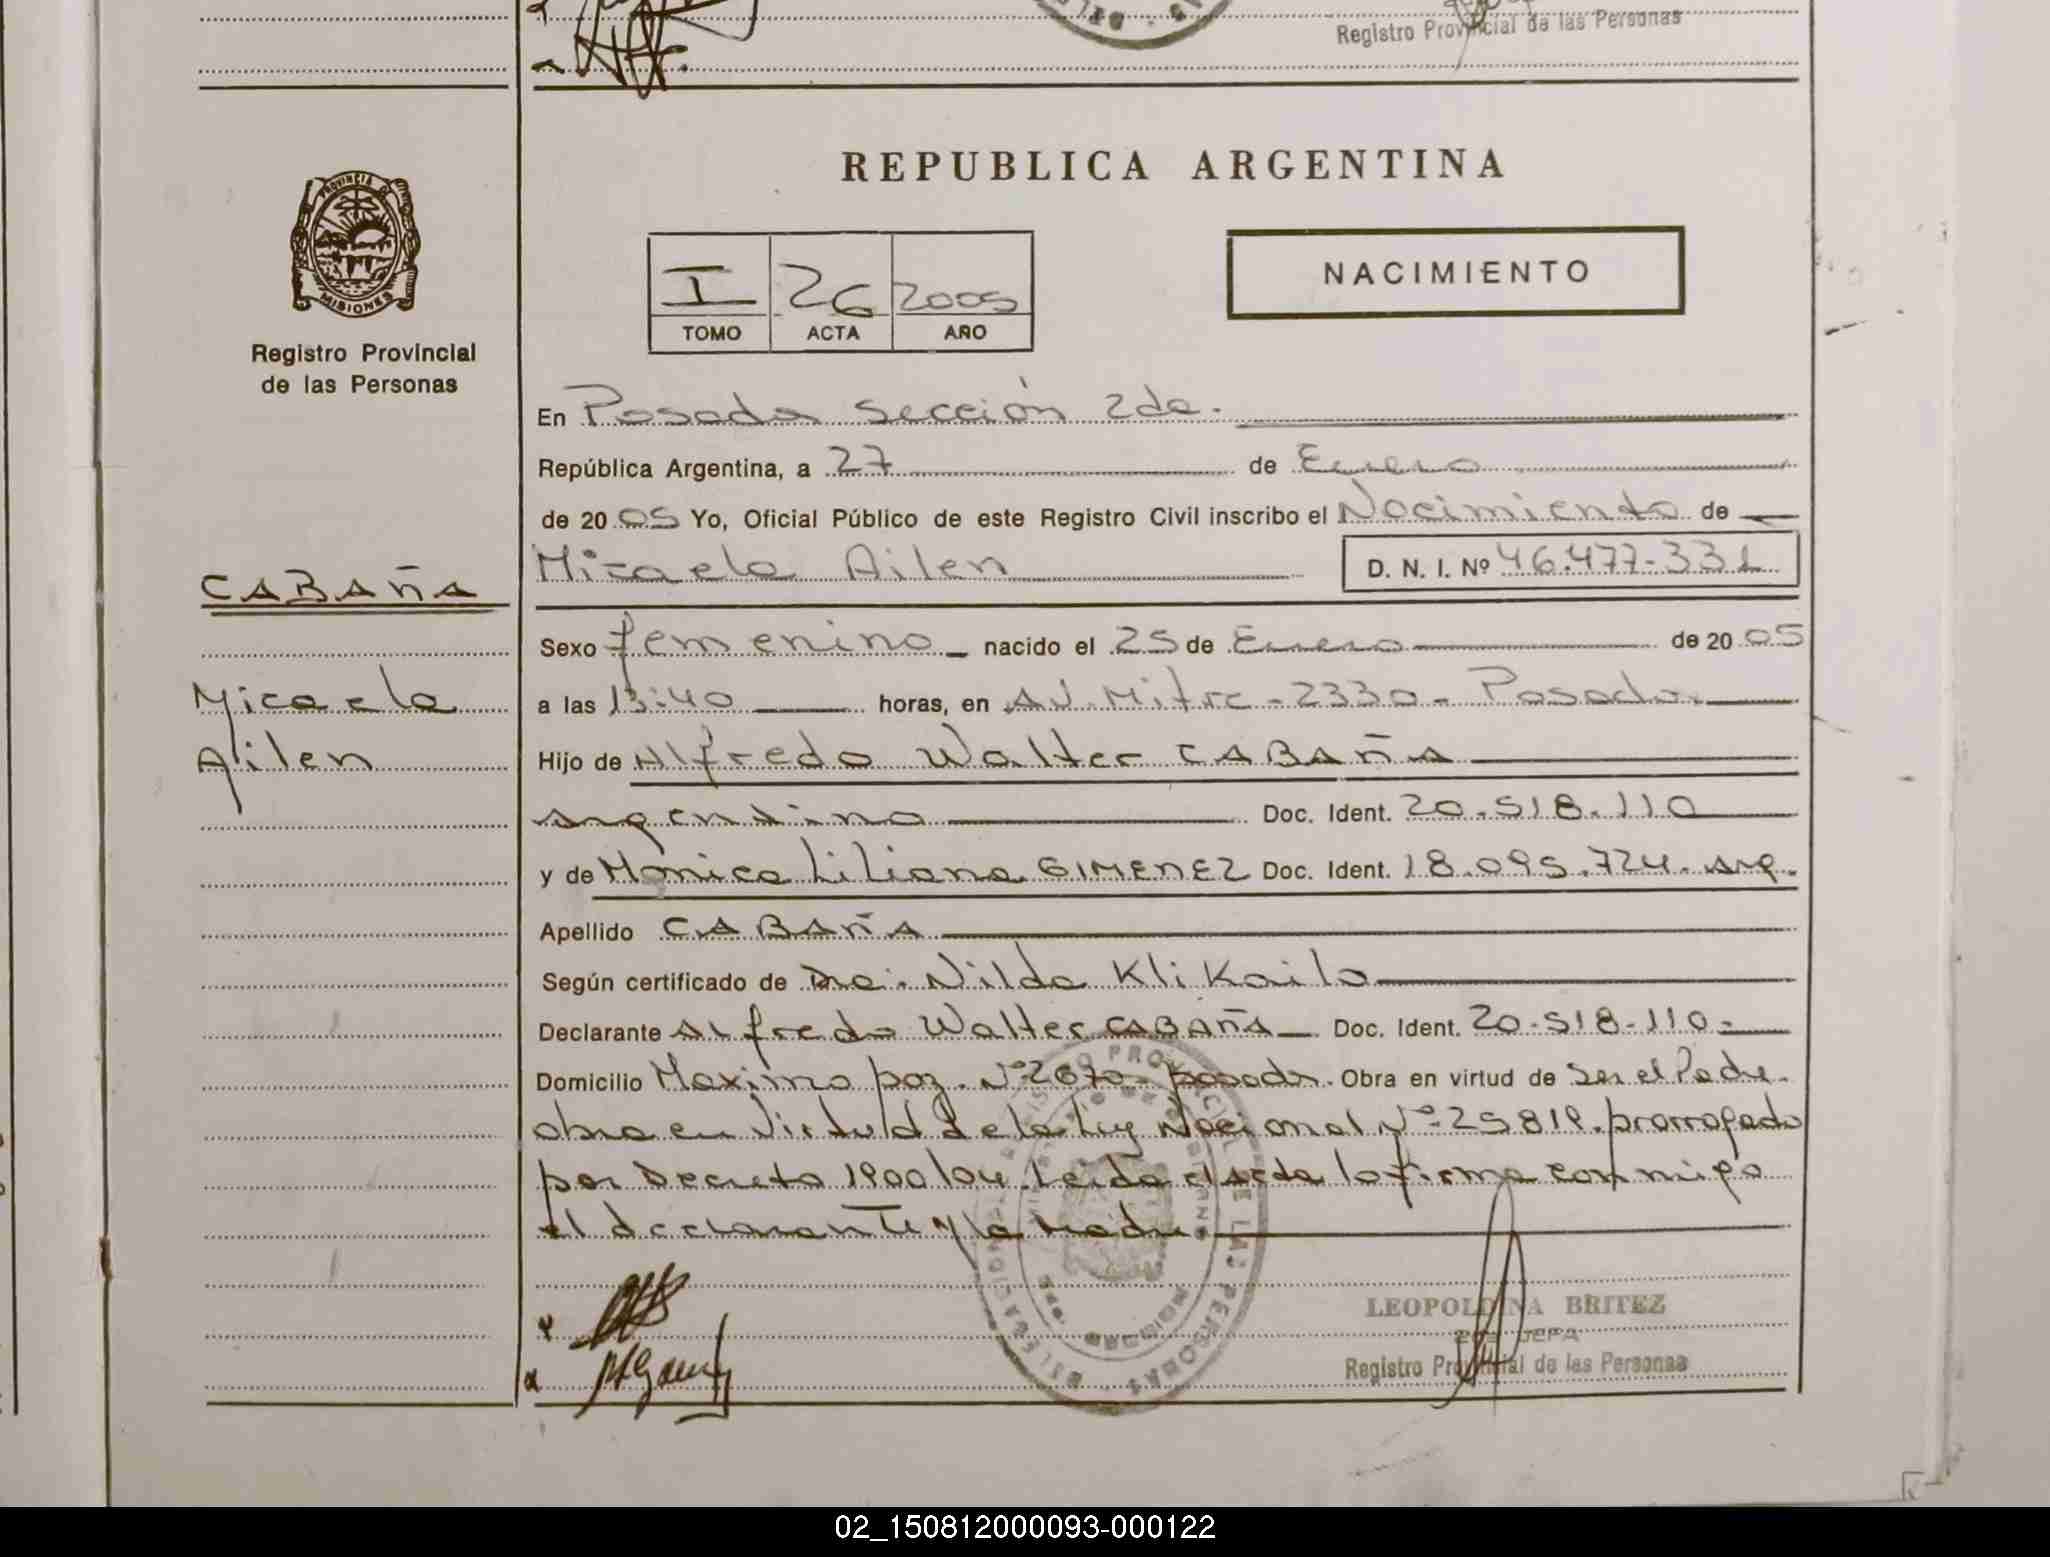 Registro Provincial de las Personas
REPUBLICA ARGENTINA
PROVINCIA DE
MISIONES
Registro Provincial
de las Personas
I 26 2005
TOMO ACTA AÑO
NACIMIENTO
En Posadas sección 2da.
República Argentina, a 27 de Enero
de 2005 Yo, Oficial Público de este Registro Civil inscribo el Nacimiento de
Micaela Ailen D. N. I. Nº 46.477-331
CABAÑA
Micaela
Ailen
Sexo femenino nacido el 25 de Enero de 2005
a las 13:40 horas, en Av. Mitre - 2330 - Posadas
Hijo de Alfredo Walter CABAÑA
argentino Doc. Ident. 20.518.110
y de Monica Liliana GIMENEZ Doc. Ident. 18.095.724. arg.
Apellido CABAÑA
Según certificado de Dra. Nilda Klikailo
Declarante Alfredo Walter CABAÑA Doc. Ident. 20-518-110-
Domicilio Maximo paz. Nº 2670- posadas. Obra en virtud de ser el Padre.
obra en Virtud de la Ley Nacional Nº 25819. prorrogado
por Decreto 1900/04. Leida el acta la firma conmigo
el declarante y la madre.
REGISTRO PROVINCIAL DE LAS PERSONAS
LEOPOLDINA BRITEZ
2do JEFA
Registro Provincial de las Personas
02_150812000093-000122